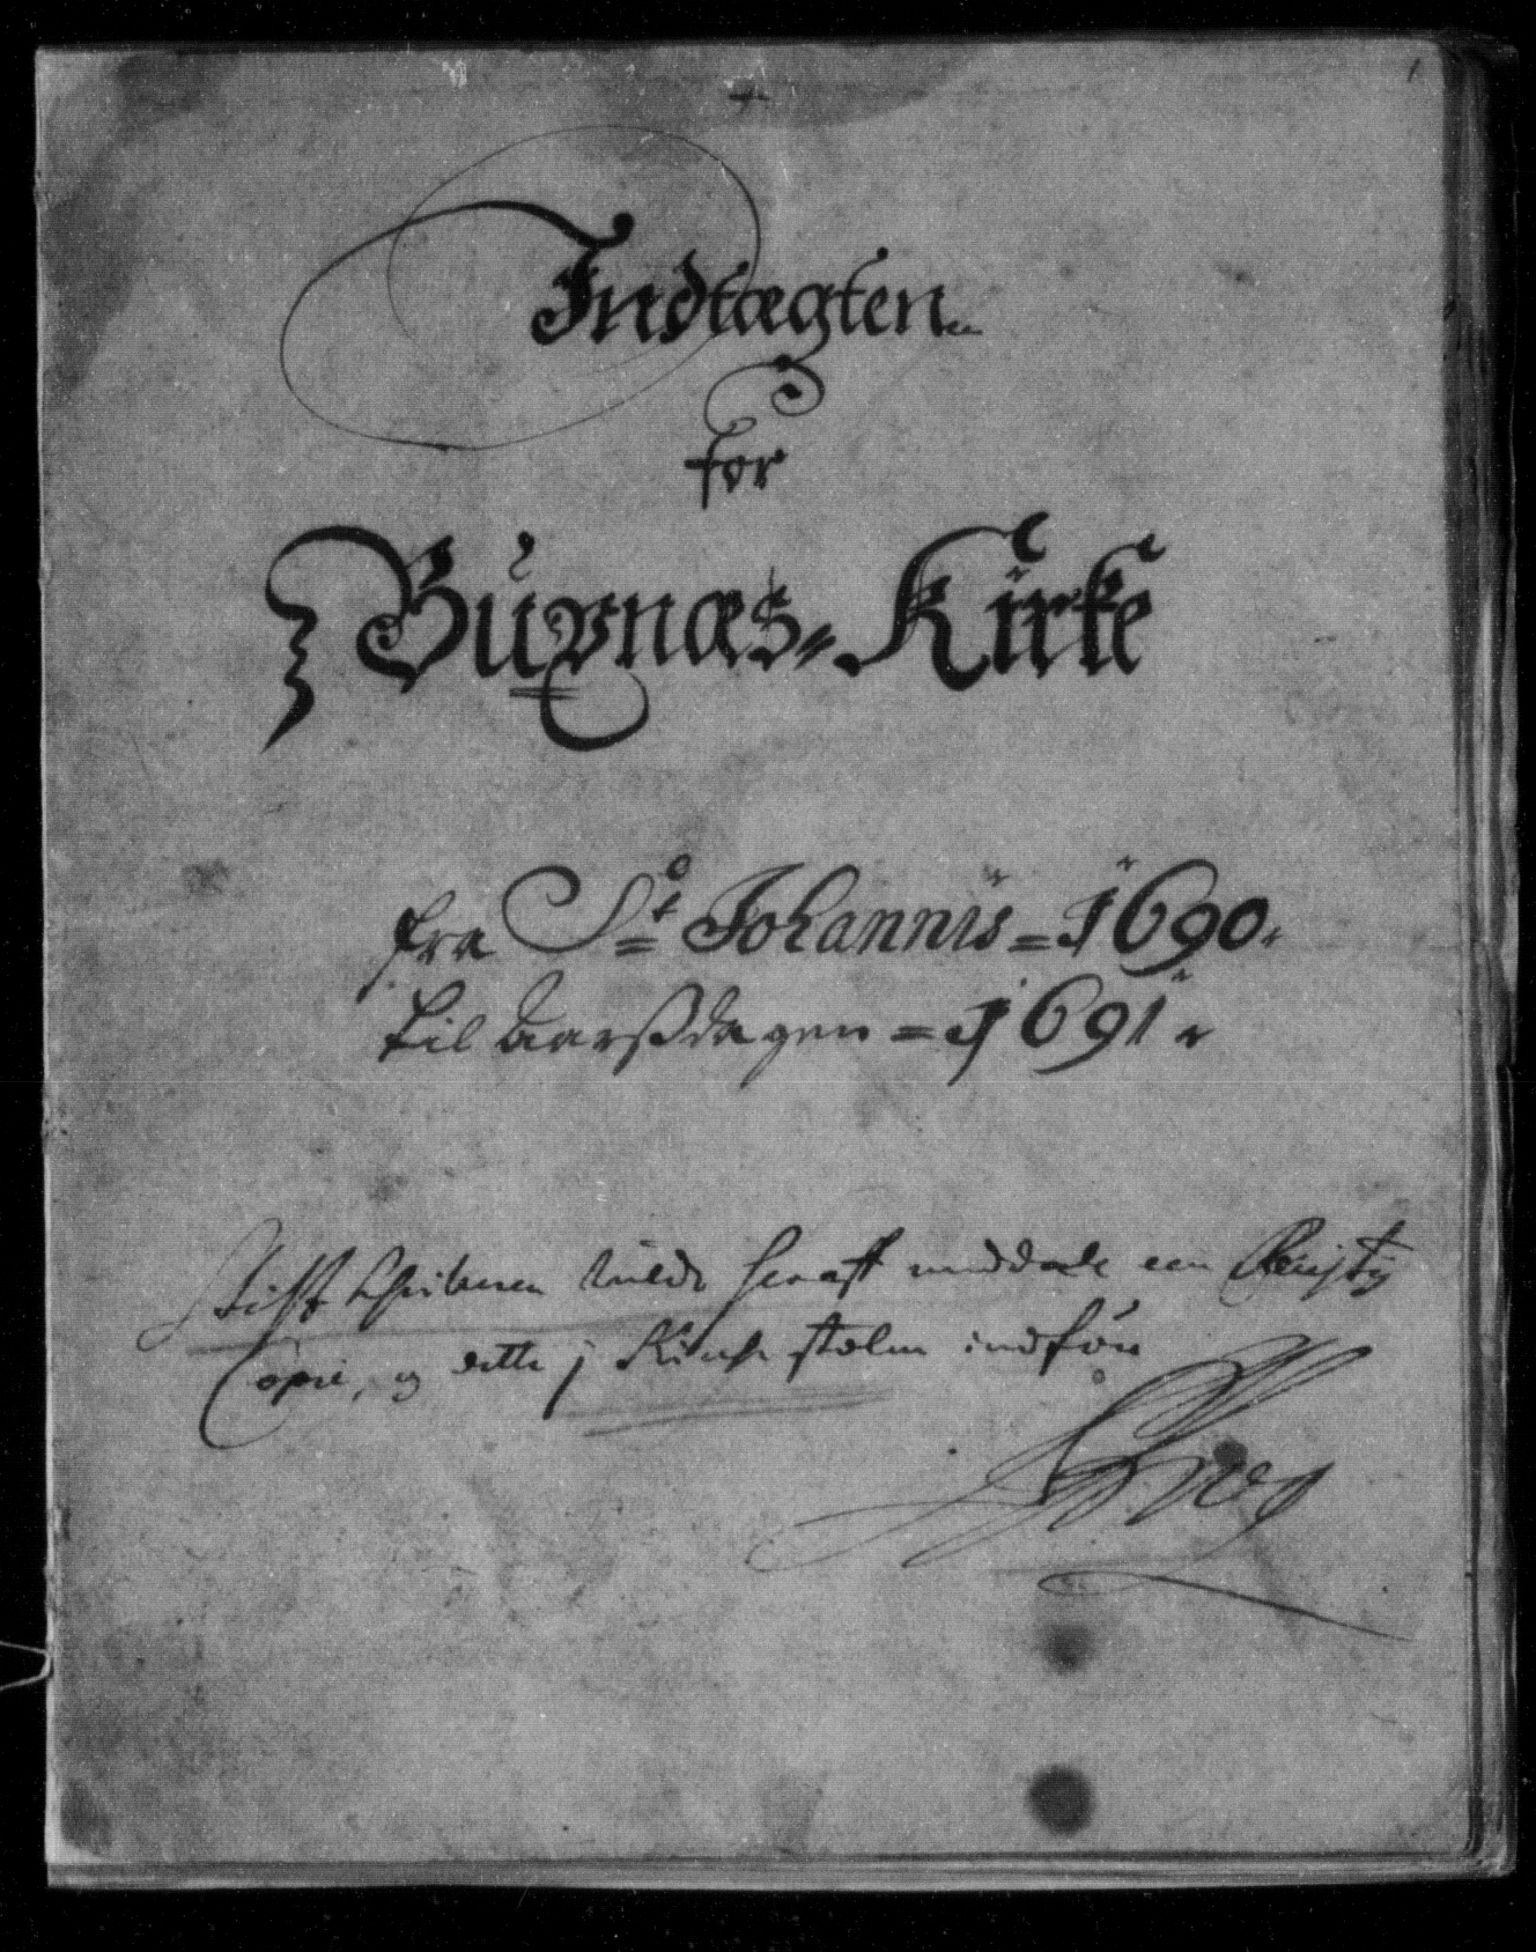 1
Indtægten
for
Buxnæs Kirke
fra St Johannis 1690
til Aarssdagen 1691
Stiftschriberen vilde heraff meddele een Rigtig
Copie, og dette j Kirche stolen indføre